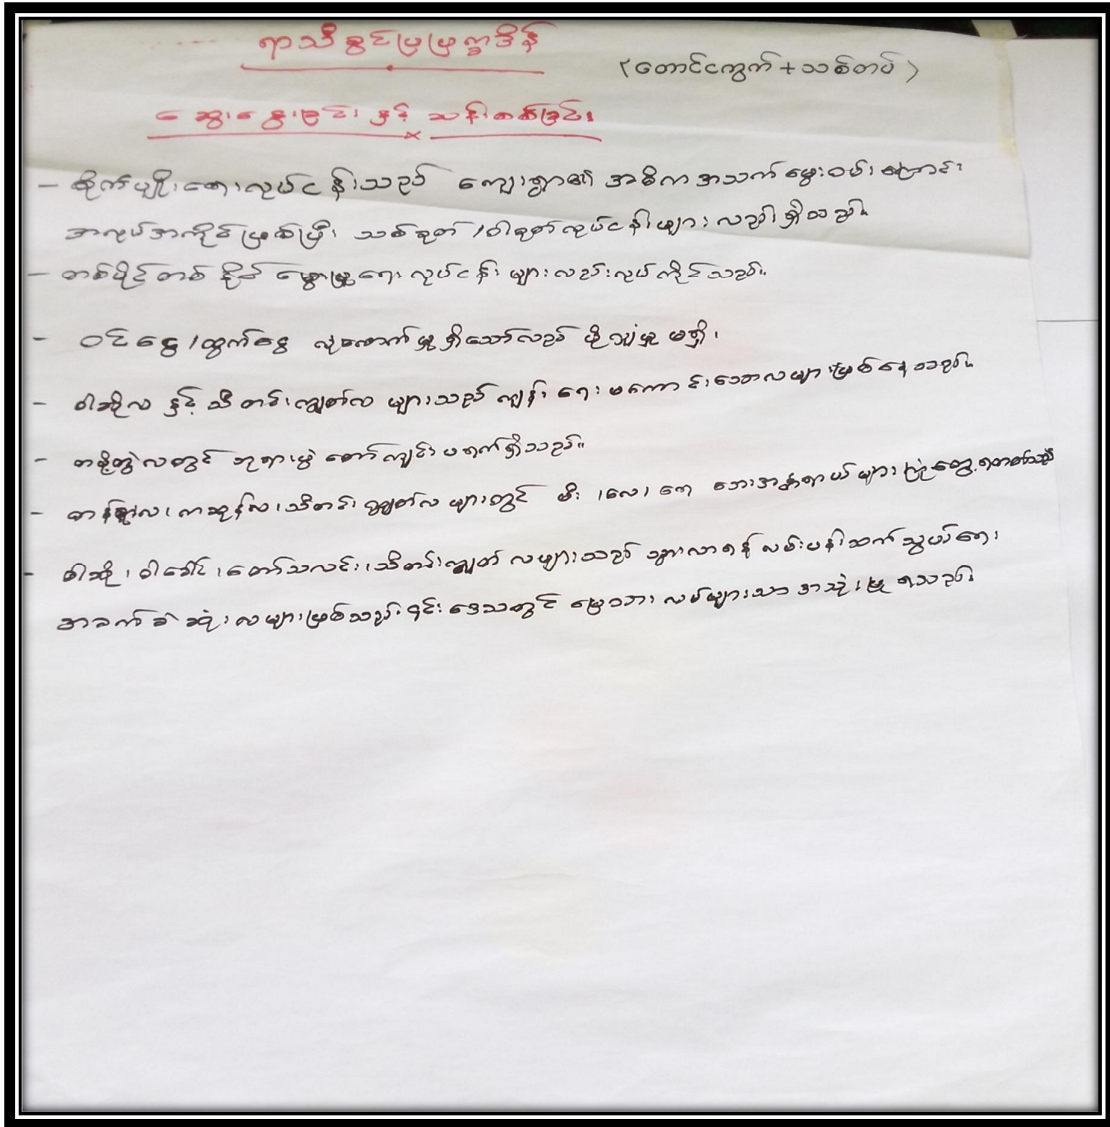 ရာသီခွင်ပြပြက္ခဒိန်
(တောင်ငကွက် + သစ်တပ်)
ဆွေးနွေးခြင်း နှင့် သန့်စစ်ခြင်း
- စိုက်ပျိုးရေးလုပ်ငန်းသည် ကျေးရွာ၏ အဓိကအသက်မွေးဝမ်းကြောင်း
အလုပ်အကိုင်ဖြစ်ပြီး သစ်ခုတ်/ဝါးခုတ်လုပ်ငန်းများလည်းရှိသည်။
- တစ်ပိုင်တစ်နိုင် မွေးမြူရေးလုပ်ငန်းများလည်းလုပ်ကိုင်သည်။
- ဝင်ငွေ/ထွက်ငွေ လုံလောက်မှုရှိသော်လည်း ပိုလျှံမှုမရှိ၊
- ဝါဆိုလ နှင့် သီတင်းကျွတ်လ များသည် ကျန်းရေးမကောင်းသောလများဖြစ်နေသည်။
- တပို့တွဲလတွင် ဘုရားပွဲတော်ကျင်းပလျက်ရှိသည်။
- တန်ခူးလ၊ ကဆုန်လ၊ သီတင်းကျွတ်လများတွင် မီး၊ လေ၊ ရေ ဘေးအန္တရာယ်များ ကြုံတွေ့ရတတ်သည်
- ဝါဆို၊ ဝါခေါင်၊ တော်သလင်း၊ သီတင်းကျွတ် လများသည် သွားလာရန် လမ်းပန်းဆက်သွယ်ရေး
အခက်ခဲဆုံးလများဖြစ်သည်။ ၎င်းဒေသတွင် မြေသားလမ်းများသာ အသုံးပြုရသည်။